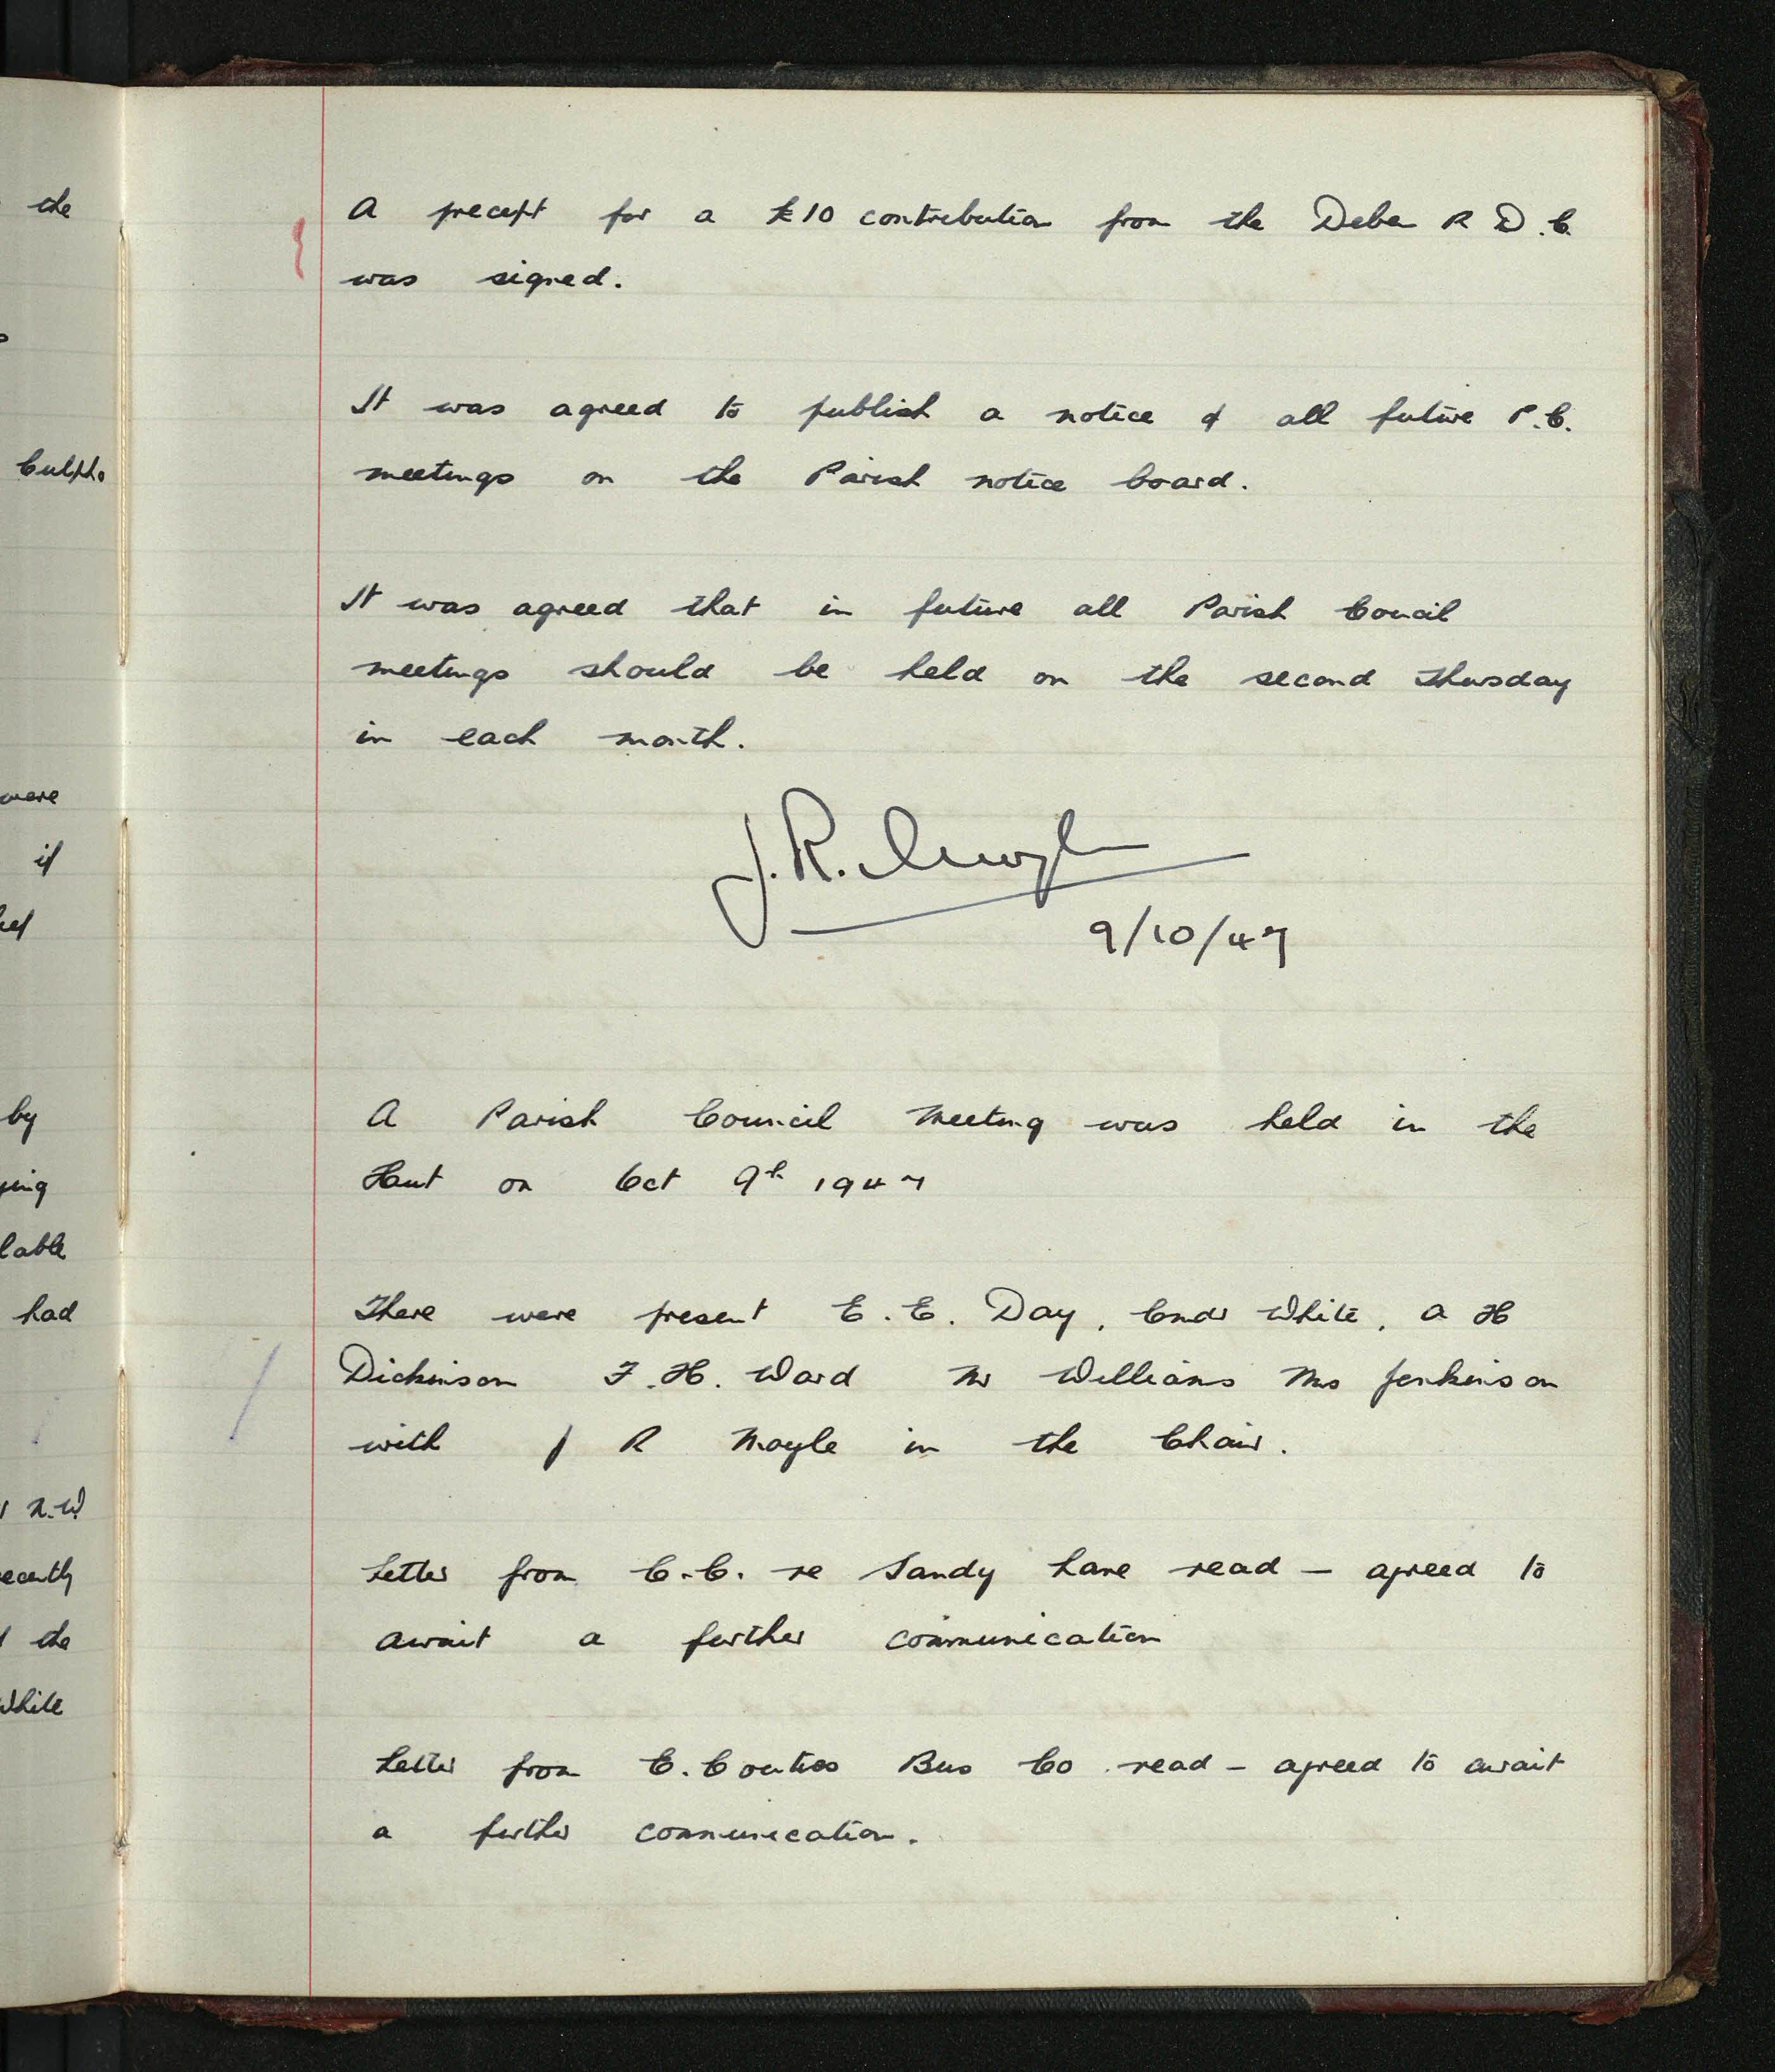 the
Culpho
were
if
by
ping
lable
had
R.W
ecently
the
White
A precept for a £10 contribution from the Deben R D.C.
was signed.
It was agreed to publish a notice of all future P.C.
meetings on the Parish notice board.
It was agreed that in future all Parish Council
meetings should be held on the second Thursday
in each month.
J.R. Moyle
9/10/47
A Parish Council Meeting was held in the
Hut on Oct 9th 1947
There were present E.E. Day, Cmdr White, A H
Dickinson F.H. Ward Mr Williams Mrs Jenkinson
with J R Moyle in the Chair.
Letter from C.C. re Sandy Lane read – agreed to
await a further communication
Letter from E. Counties Bus Co. read – agreed to await
a further communication.